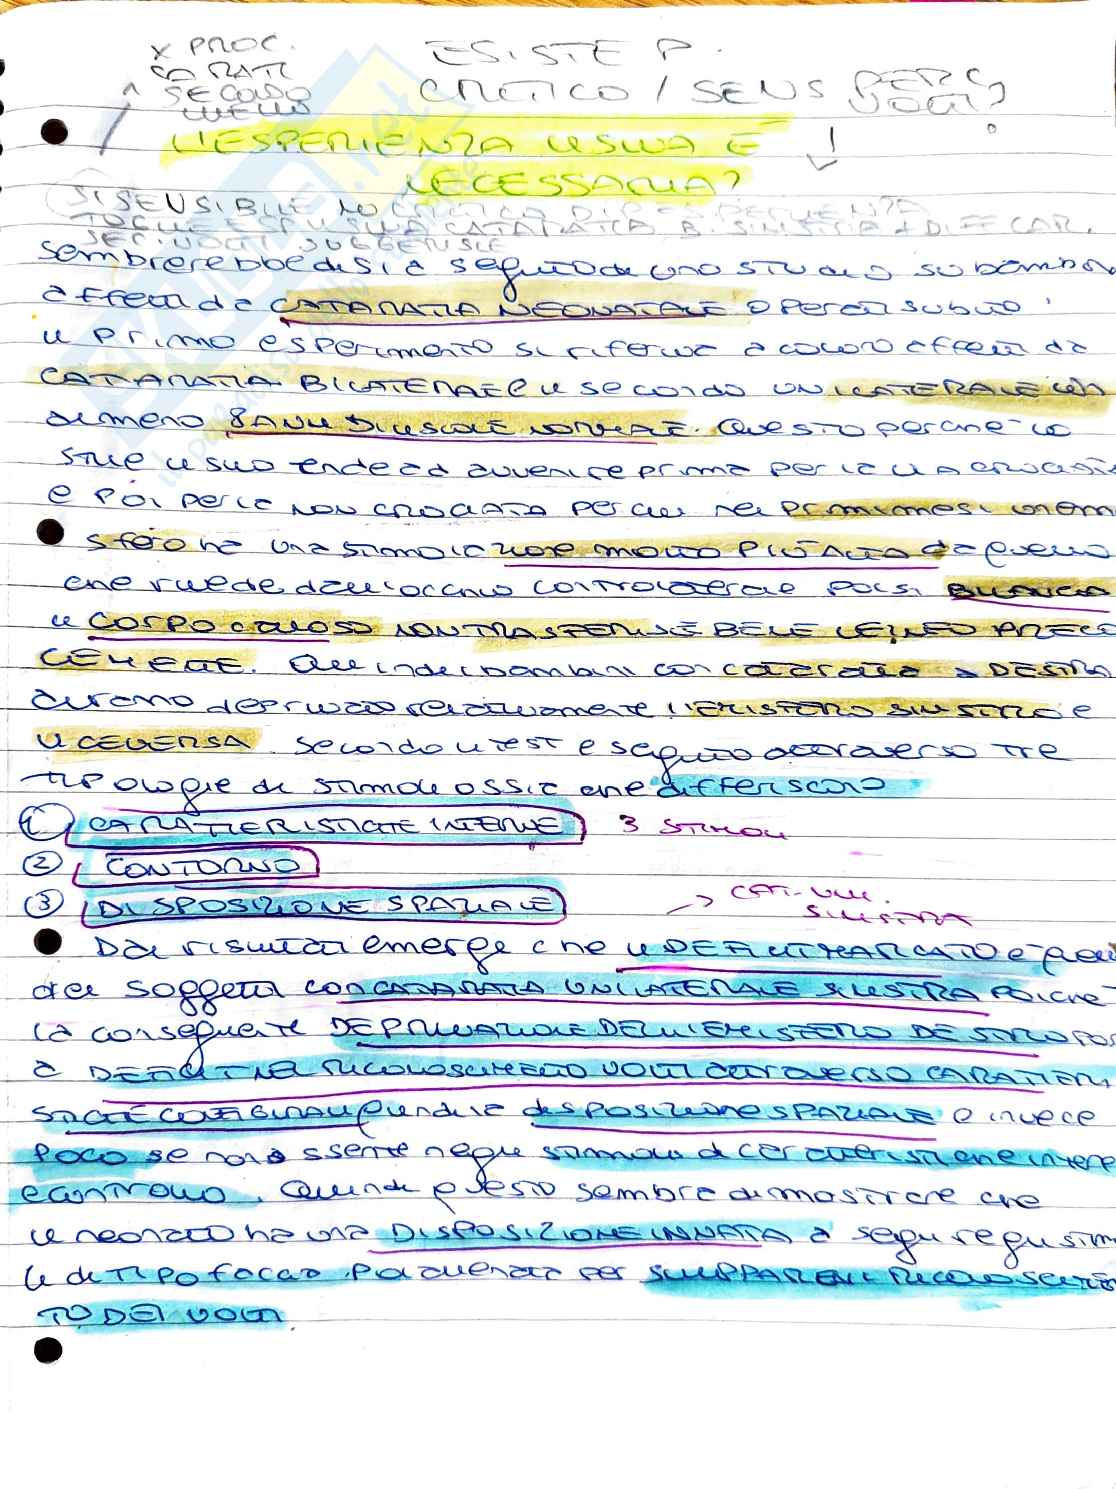 X PROC.
CARATT
SECONDO
LIVELLO
ESISTE P.
CRITICO / SENS PER
VOLTI?
L'ESPERIENZA VISIVA È
NECESSARIA?
SÌ SENSIBILE NO CRITICO
TOGLIE ESP VISIVA CATARATTA B. SINISTRA DIFF CAR.
sembrerebbe di sì a seguito di uno studio su bambini
affetti da CATARATTA NEONATALE operati subito
il primo esperimento si riferiva a coloro affetti da
CATARATTA BILATERALE e il secondo UNILATERALE con
almeno 8 ANNI DI VISIONE NORMALE. Questo perché lo
stile visivo tende ad avvenire prima per la via CROCIATA
e poi per la NON CROCIATA per cui nei primi mesi un emi
sfero ha una stimolazione molto PIÙ ALTA da quello
che vede dall'occhio controlaterale poi si BILANCIA
il CORPO CALLOSO NON TRASFERISCE BENE LE INFO PRECO
CEMENTE. Quindi i bambini con cataratta a DESTRA
avranno deprivato relativamente l'EMISFERO SINISTRO e
VICEVERSA. Secondo il test è seguito attraverso tre
tipologie di stimoli ossia che differiscono
① CARATTERISTICHE INTERNE 3 STIMOLI
② CONTORNO
③ DISPOSIZIONE SPAZIALE
→ CAT. UNI.
SINISTRA
Dai risultati emerge che il DEFICIT MARCATO è quello
dei soggetti CON CATARATTA UNILATERALE SINISTRA poiché
la conseguente DEPRIVAZIONE DELL'EMISFERO DESTRO porta
a DEFICIT NEL RICONOSCIMENTO VOLTI attraverso CARATTERI
STICHE CONFIGURALI quindi la disposizione SPAZIALE e invece
poco se non assente negli stimoli di caratteristiche interne
e contorno. Quindi questo sembra dimostrare che
il neonato ha una DISPOSIZIONE INNATA a seguire gli stimo
li di tipo facciale per SVILUPPARE il RICONOSCIMEN
TO DEI VOLTI